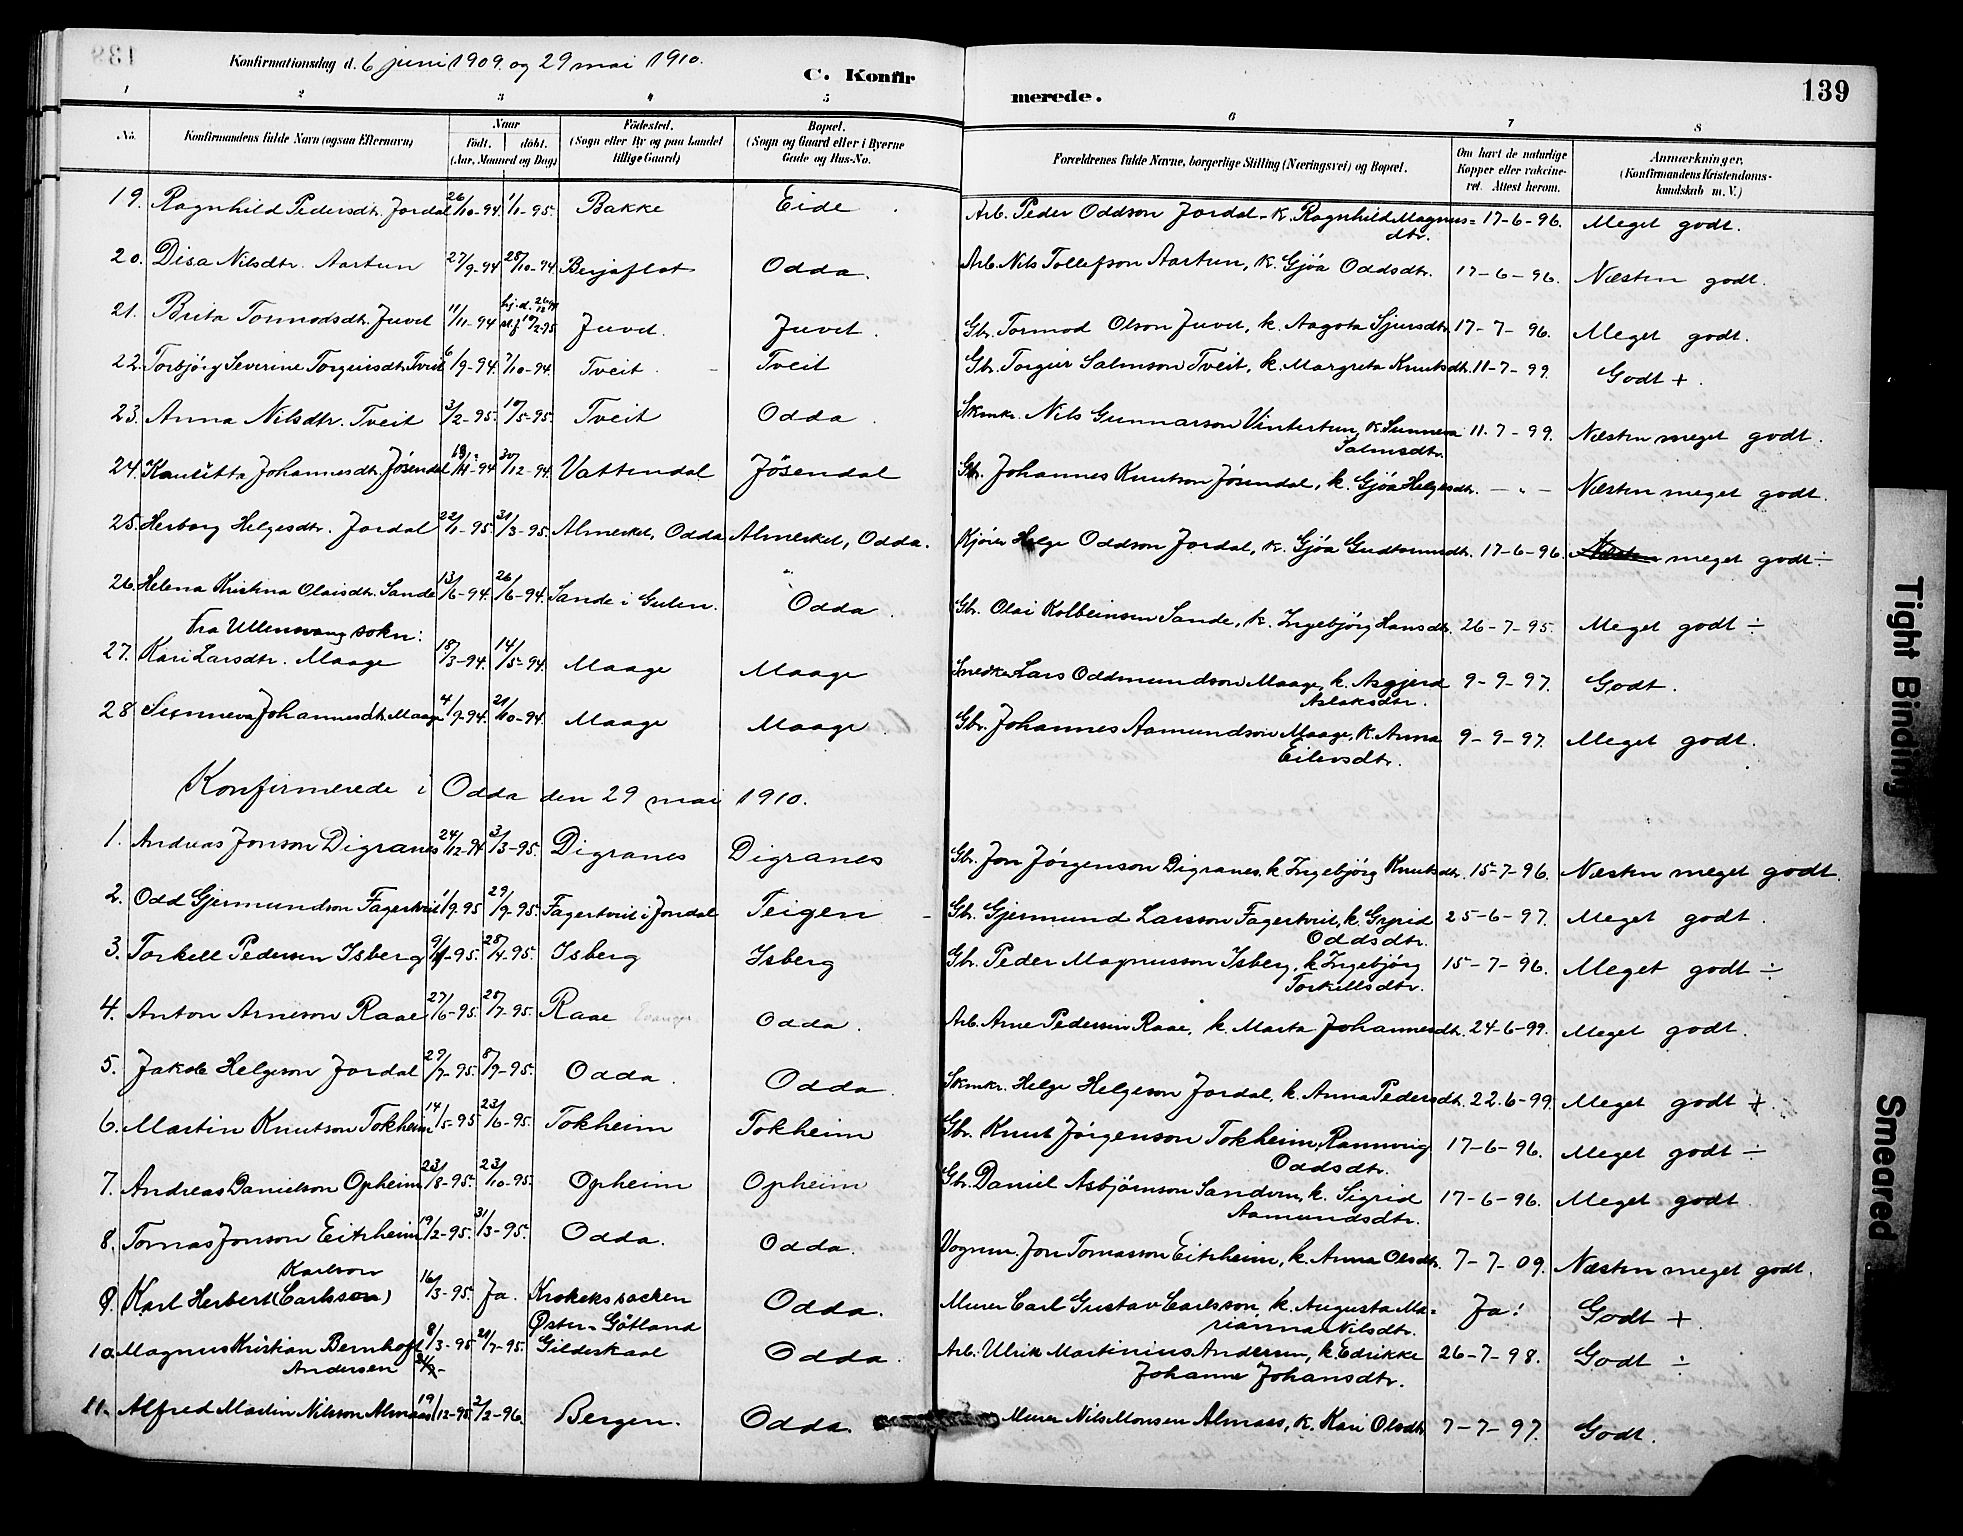 Konfirmationsdag d. 6 juni 1909. og 29 mai 1910.
C. Konfirmerede.
139
1 2 3 4 5 6 7 8
No. Konfirmandens fulde Navn (ogsaa Efternavn) Naar födt. döbt. (Aar, Maaned og Dag) Födested. (Sogn eller By og paa Landet tillige Gaard) Bopæl. (Sogn og Gaard eller i Byerne Gade og Hus-No. Forældrenes fulde Navne, borgerlige Stilling (Næringsvei) og Bopæl. Om havt de naturlige Kopper eller vakcineret. Attest herom. Anmærkninger. (Konfirmandens Kristendomskundskab m. V.)
19. Ragnhild Pedersdtr. Jordal 26/10-94 1/1-95. Bakke Eide. Arb. Peder Oddson Jordal - k. Ragnhild Magnusdtr. 17-6-96. Meget godt.
20. Disa Nilsdtr. Aartun 27/9-94 28/10-94 Berjaflot Odda. Arb. Nils Tollefson Aartun, k. Gjøa Oddsdtr. 17-6-96. Næsten godt.
21. Brita Tormodsdtr. Juvet 11/11-94 Juvet. Juvet. Gbr. Tormod Olson Juvet, k. Aagota Sjursdtr. 17-7-96. Meget godt.
22. Torbjørg Severine Torgeirsdtr. Tveit 6/9-94. 7/10-94. Tveit. Tveit Gbr. Torgeir Salmson Tveit, k. Margreta Knutsdtr. 11-7-99. Godt +.
23. Anna Nilsdtr. Tveit 3/2-95. Tveit Odda. Skmkr. Nils Gunnarson Vintertun, k. Sunneva Salmsdtr. 11-7-99. Næsten meget godt.
24. Johannesdtr. Jøsendal 30/12-94. Vattendal Jøsendal Gbr. Johannes Knutson Jøsendal, k. Gjøa Helgesdtr. - " - Næsten meget godt.
25. Herborg Helgesdtr. Jordal 22/1-95. 31/3-95. Almerket, Odda Almerket, Odda. Kjører Helge Oddson Jordal, k. Gjøa Gudtormsdtr. 17-6-96. Næsten meget godt ÷
26. Helena Kristina Olaisdtr. Sande 13/6-94. 26/6-94. Sande i Gulen. Odda. Gbr. Olai Kolbeinsen Sande, k. Ingebjørg Hansdtr. 26-7-95. Meget godt ÷
Fra Ullensvang sokn:
27. Kari Larsdtr. Maage 18/3-94. 14/5-94. Maage Maage Snedker Lars Oddmundson Maage, k. Asgjerd Aslaksdtr. 9-9-97. Godt.
28 Sunneva Johannesdtr. Maage 4/9-94. 21/10-94. Maage Maage. Gbr. Johannes Aamundson Maage, k. Anna Eilevsdtr. 9-9-97. Meget godt.
Konfirmerede i Odda den 29 mai 1910.
1. Andreas Jonson Digranes 24/12-94 3/3-95. Digranes Digranes Gbr. Jon Jørgenson Digranes, k. Ingebjørg Knutsdtr. 15-7-96. Næsten meget godt.
2. Odd Gjermundson Fagertveit 1/9-95 29/9-95. Fagertveit i Jordal Teigen Gbr. Gjermund Larsson Fagertveit, k. Gyrid Oddsdtr. 25-6-97. Meget godt.
3. Torkell Pederson Isberg 9/4-95. 28/4-95. Isberg Isberg Gbr. Peder Magnusson Isberg, k. Ingebjørg Torkellsdtr. 15-7-96. Meget godt ÷
4. Anton Arneson Raae 27/6-95. 28/7-95. Raae Odda. Arb. Arne Pedersen Raae, k. Marta Johannesdtr. 24-6-99. Meget godt.
5. Jakob Helgeson Jordal 29/7-95. 8/9-95. Odda. Odda. Skmkr. Helge Helgeson Jordal, k. Anna Pedersdtr. 22.6-99. Meget godt +.
6. Martin Knutson Tokheim 14/5-95 23/6-95. Tokheim Tokheim Gbr. Knut Jørgenson Tokheim, Rannveig Oddsdtr. 17-6-96. Meget godt ÷
7. Andreas Danielson Opheim 23/8-95. 23/10-95. Opheim Opheim Gbr. Daniel Asbjørnson Sandven, k. Sigrid Aamundsdtr. 17-6-96. Meget godt.
8. Tomas Jonson Eitrheim 19/2-95. 31/3-95. Odda. Odda. Vognm. Jon Tomasson Eitrheim, k. Anna Olsdtr. 7-7-09. Næsten meget godt.
9. Karl Herbert Karlson (Carlsson) 16/3-95. Ja. Krokekssocken Øster-Götland Odda. Murer Carl Gustav Carlsson, k. Augusta Marianna Nilsdtr. Ja! Godt +.
10. Magnus Kristian Bernhoft Andersen 8/3-95 21/7-95. Gildeskaal Odda. Arb. Ulrik Martinius Andersen, k. Edrikke Johanne Johansdtr. 26-7-98. Godt ÷
11. Alfred Martin Nilsson Almaas 19/12-95 2/2-96. Bergen. Odda. Murer Nils Monsen Almaas, k. Kari Olsdtr. 7-7-97. Godt.
Tight Binding
Smeared